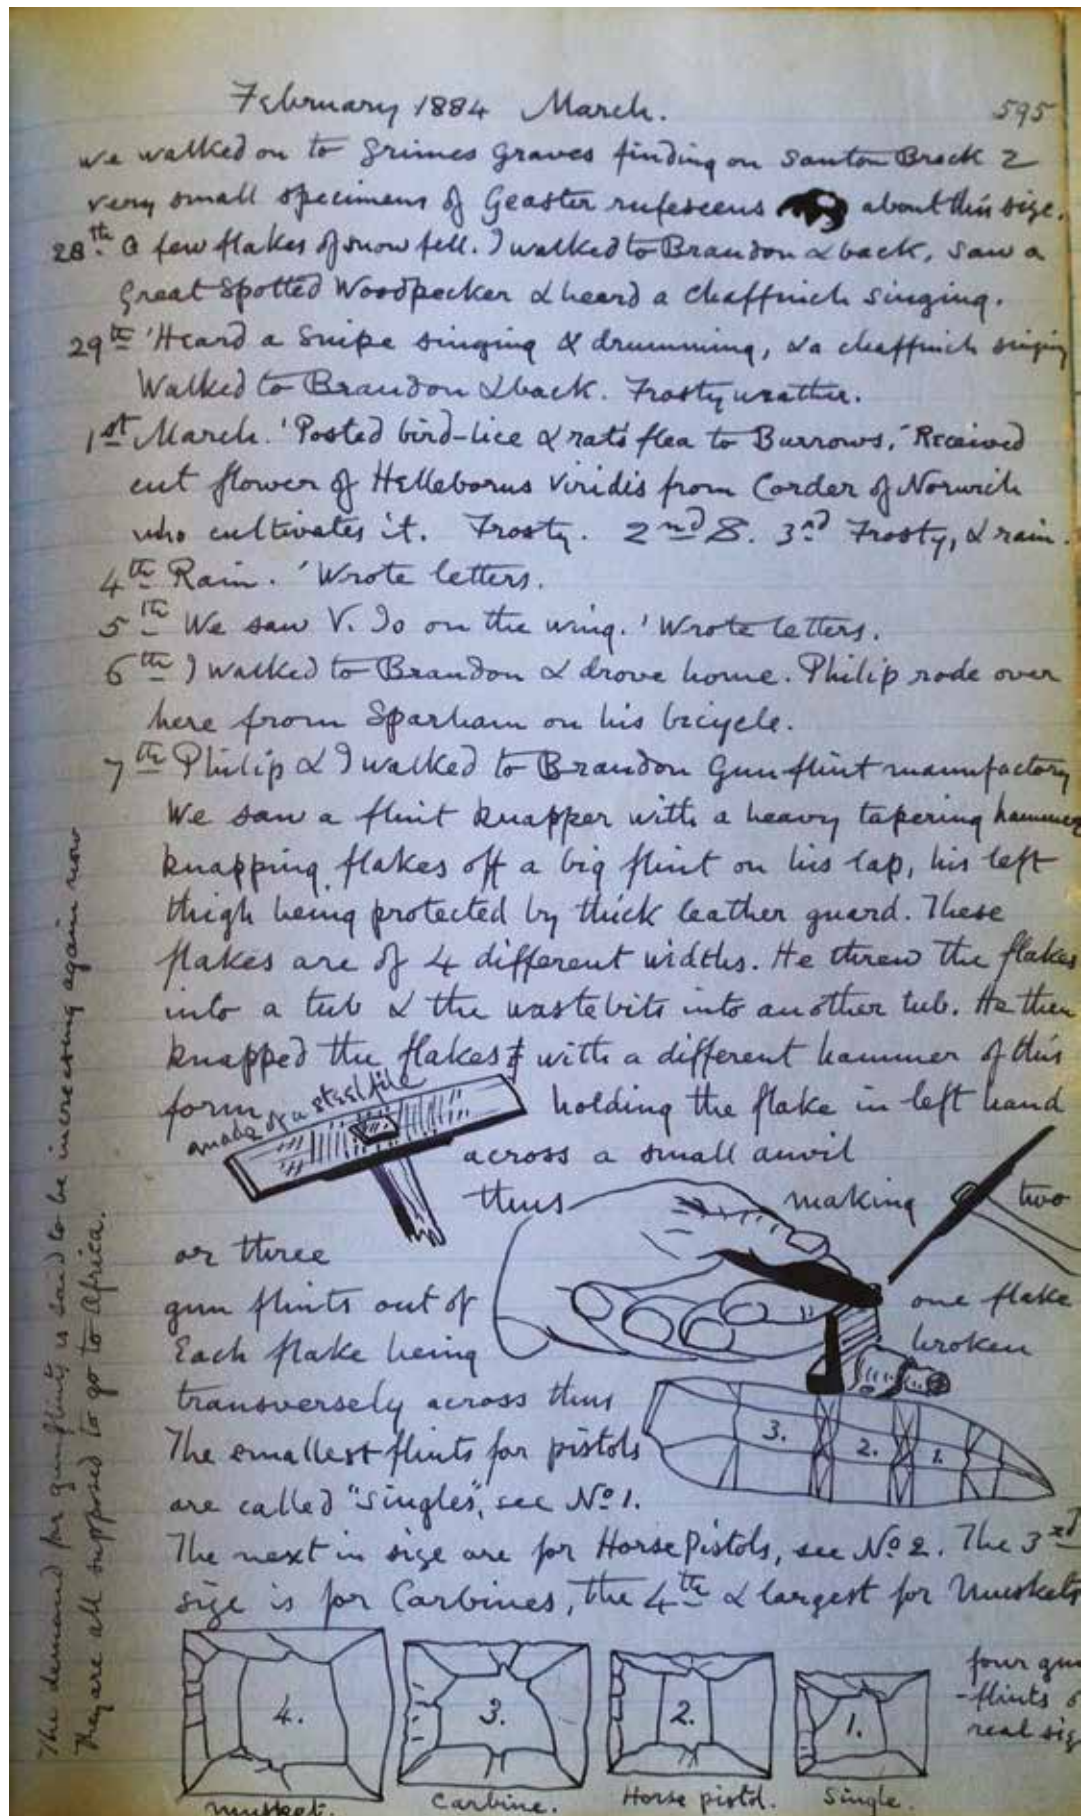 February 1884 March. 595
we walked on to Grimes Graves finding on Santon Breck 2
very small specimens of Geaster rufescens about this size.
28th A few flakes of snow fell. I walked to Brandon & back, saw a
Great Spotted Woodpecker & heard a chaffinch singing.
29th 'Heard a Snipe singing & drumming, & a chaffinch singing
Walked to Brandon & back. Frosty weather.
1st March. 'Posted bird-lice & rats flea to Burrows, 'Received
cut flower of Helleborus Viridis from Corder of Norwich
who cultivates it. Frosty. 2nd S. 3rd Frosty, & rain.
4th Rain. 'Wrote letters.
5th We saw V. Io on the wing. 'Wrote letters.
6th I walked to Brandon & drove home. Philip rode over
here from Sparham on his bicycle.
7th Philip & I walked to Brandon Gun flint manufactory
We saw a flint knapper with a heavy tapering hammer
knapping flakes off a big flint on his lap, his left
thigh being protected by thick leather guard. These
flakes are of 4 different widths. He threw the flakes
into a tub & the waste bits into another tub. He then
knapped the flakes with a different hammer of this
form holding the flake in left hand
made of a steel file
across a small anvil
thus making two
or three
gun flints out of one flake
Each flake being broken
transversely across thus
3. 2. 1.
The smallest flints for pistols
are called "Singles", see No 1.
The next in size are for Horse Pistols, see No 2. The 3rd
size is for Carbines, the 4th & largest for Muskets
4. 3. 2. 1.
four gun
-flints
real
Musket. Carbine. Horse pistol. Single.
The demand for gunflints is said to be increasing again now
They are all supposed to go to Africa.